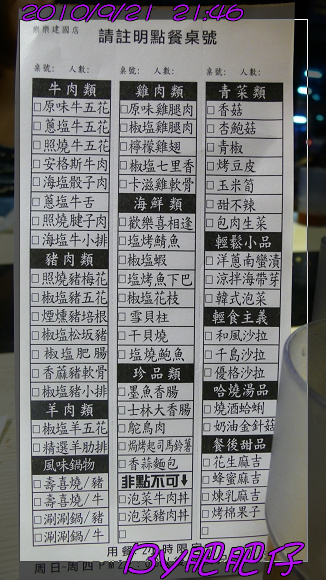 2010/9/21 21:46
樂樂建國店
請註明點餐桌號
桌號: 人數:
桌號: 人數:
桌號: 人數:
牛肉類
□原味牛五花
□蔥塩牛五花
□照燒牛五花
□安格斯牛肉
□海塩骰子肉
□蔥塩牛舌
□照燒腱子肉
□海塩牛小排
豬肉類
□照燒豬梅花
□椒塩豬五花
□煙燻豬培根
□椒塩松坂豬
□椒塩肥腸
□香蒜豬軟骨
□椒塩豬小排
羊肉類
□椒塩羊五花
□精選羊肋排
風味鍋物
□壽喜燒/豬
□壽喜燒/牛
□涮涮鍋/豬
□涮涮鍋/牛
雞肉類
□原味雞腿肉
□椒塩雞腿肉
□檸檬雞翅
□椒塩七里香
□卡滋雞軟骨
海鮮類
□歡樂喜相逢
□塩烤鯖魚
□椒塩蝦
□塩烤魚下巴
□椒塩花枝
□雪貝柱
□干貝燒
□塩燒鮑魚
珍品類
□墨魚香腸
□士林大香腸
□鴕鳥肉
□焗烤起司馬鈴薯
□香蒜麵包
非點不可↓
□泡菜牛肉丼
□泡菜豬肉丼
青菜類
□香菇
□杏鮑菇
□青椒
□烤豆皮
□玉米筍
□甜不辣
□包肉生菜
輕鬆小品
□洋蔥南蠻漬
□涼拌海帶芽
□韓式泡菜
輕食主義
□和風沙拉
□千島沙拉
□優格沙拉
哈燒湯品
□燒酒蛤蜊
□奶油金針菇
餐後甜品
□花生麻吉
□蜂蜜麻吉
□煉乳麻吉
□烤棉果子
用餐
時限
周日-周四
By肥肥仔